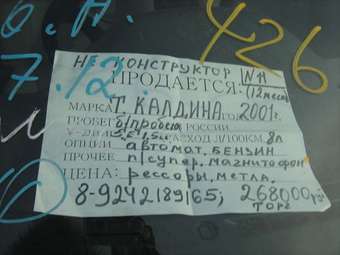 О.Н.
7.12.
426
НЕ КОНСТРУКТОР
ПРОДАЕТСЯ:
МАРКА Т. КАЛДИНА ГОД 2001г.
ПРОБЕГ б/пробега РОССИИ
РАСХОД Л/100КМ. 8л
ОПЦИИ автомат, БЕНЗИН
ПРОЧЕЕ п/супер, магнитофон
ЦЕНА: рессоры, метла.
8-9242189165; 268000 руб
торг